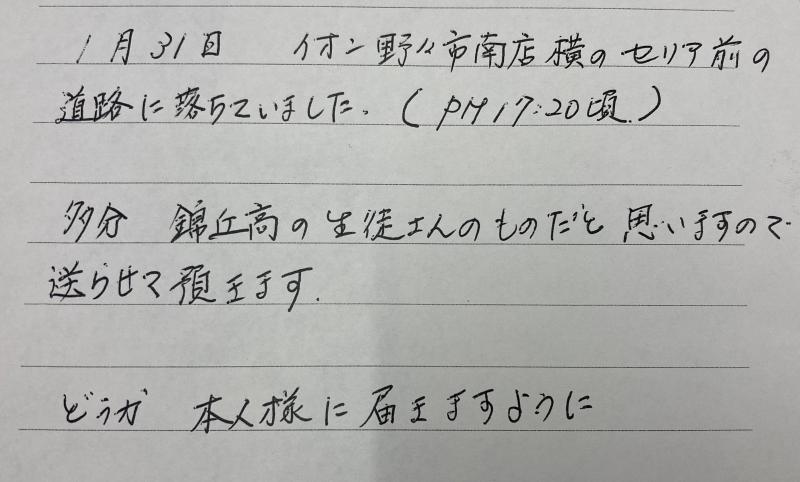 1月31日 イオン野々市南店横のセリア前の
道路に落ちていました。(PM17:20頃.)
多分 錦丘高の生徒さんのものだと思いますので
送らせて預きます.
どうか 本人様に届きますように